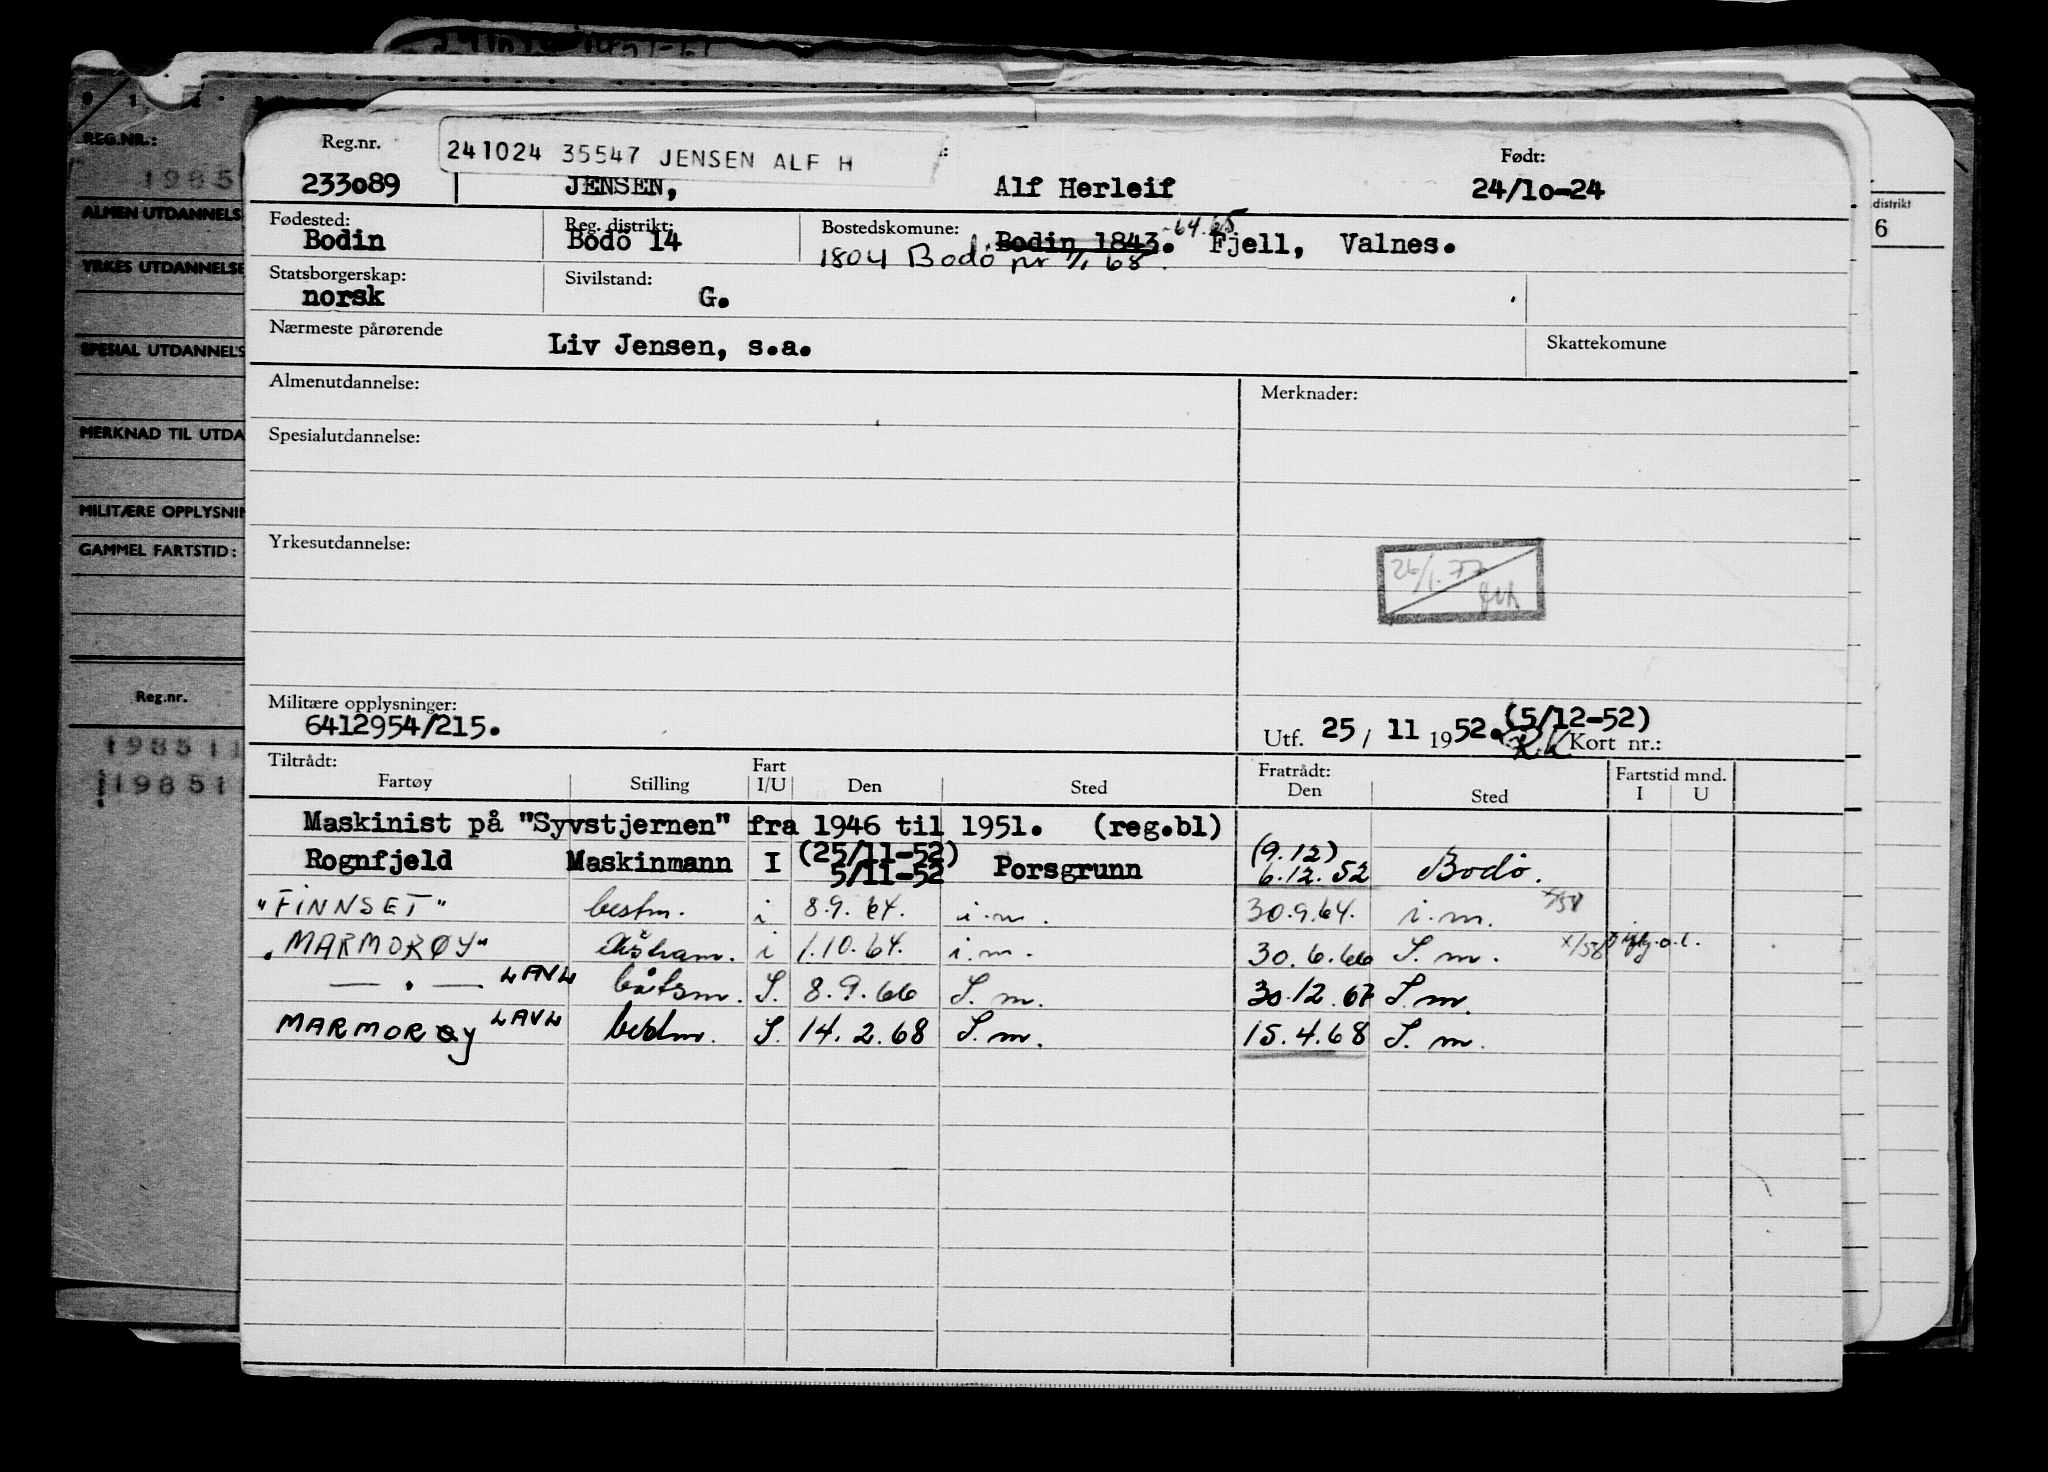 REG.NR.:
1985
ALMEN UTDANNELS
YRKES UTDANNELSE
SPESIAL UTDANNELS
MERKNAD TIL UTDA
MILITÆRE OPPLYSNIN
GAMMEL FARTSTID:
Reg.nr.
198511
198511
distrikt
6
241024 35547 JENSEN ALF H
Reg.nr. Født:
233o89 JENSEN, Alf Herleif 24/1o-24
Fødested: Reg. distrikt: Bostedskomune: -64.65
Bodin Bodö 14 Bodin 1843. Fjell, Valnes.
1804 Bodö pr 1/1 68.
Statsborgerskap: Sivilstand:
norsk G.
Nærmeste pårørende Liv Jensen, s.a. Skattekomune
Almenutdannelse: Merknader:
Spesialutdannelse:
Yrkesutdannelse:
26/1.77
Militære opplysninger:
6412954/215.
Utf. 25/ 11 1952. (5/12-52) Kort nr.:
Tiltrådt: Fart Fratrådt: Fartstid mnd.
Fartøy Stilling I/U Den Sted Den Sted I U
Maskinist på "Syvstjernen" fra 1946 til 1951. (reg.bl)
(25/11-52) (9.12)
Rognfjeld Maskinmann I 5/11-52 Porsgrunn 6.12.52 Bodö.
"FINNSET" bestm. i 8.9.64. i.m. 30.9.64. i.m.
"MARMORØY" i 1.10.64. i.m. 30.6.66 S.m.
— " — LAVL båtsm. S. 8.9.66 S.m. 30.12.67 S.m.
MARMORøy LAVL bestm. S. 14.2.68 S.m. 15.4.68 S.m.